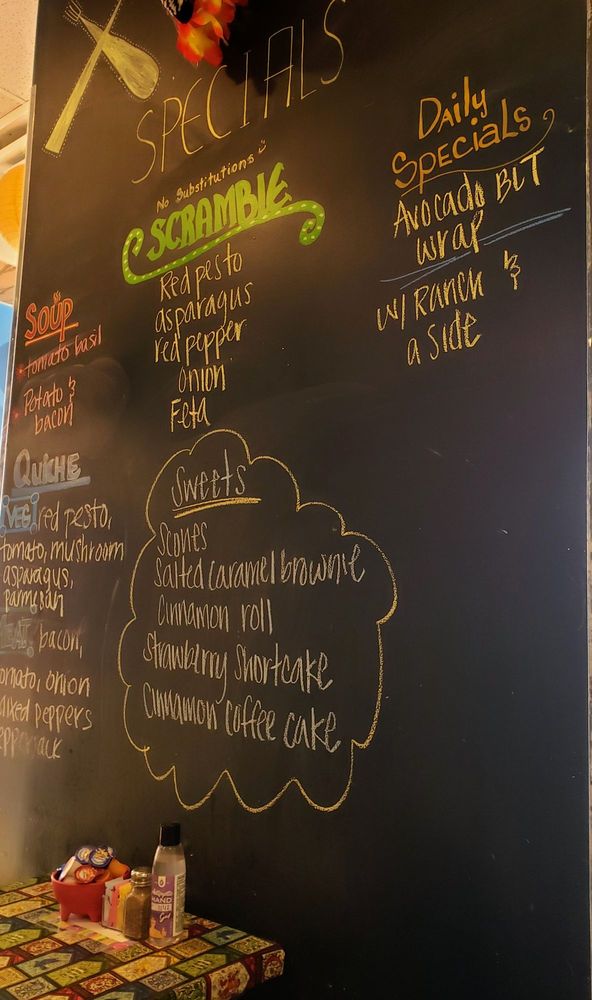 SPECIALS
No Substitutions
SCRAMBLE
Red pesto
asparagus
red pepper
onion
Feta
Daily
Specials
Avocado BLT
wrap
w/ Ranch &
a side
Soup
tomato basil
Potato &
bacon
QUICHE
VEG red pesto,
tomato, mushroom
asparagus,
parmesan
MEAT bacon,
tomato, onion
mixed peppers
pepperjack
Sweets
Scones
Salted caramel brownie
Cinnamon roll
Strawberry Shortcake
Cinnamon coffee cake
HAND